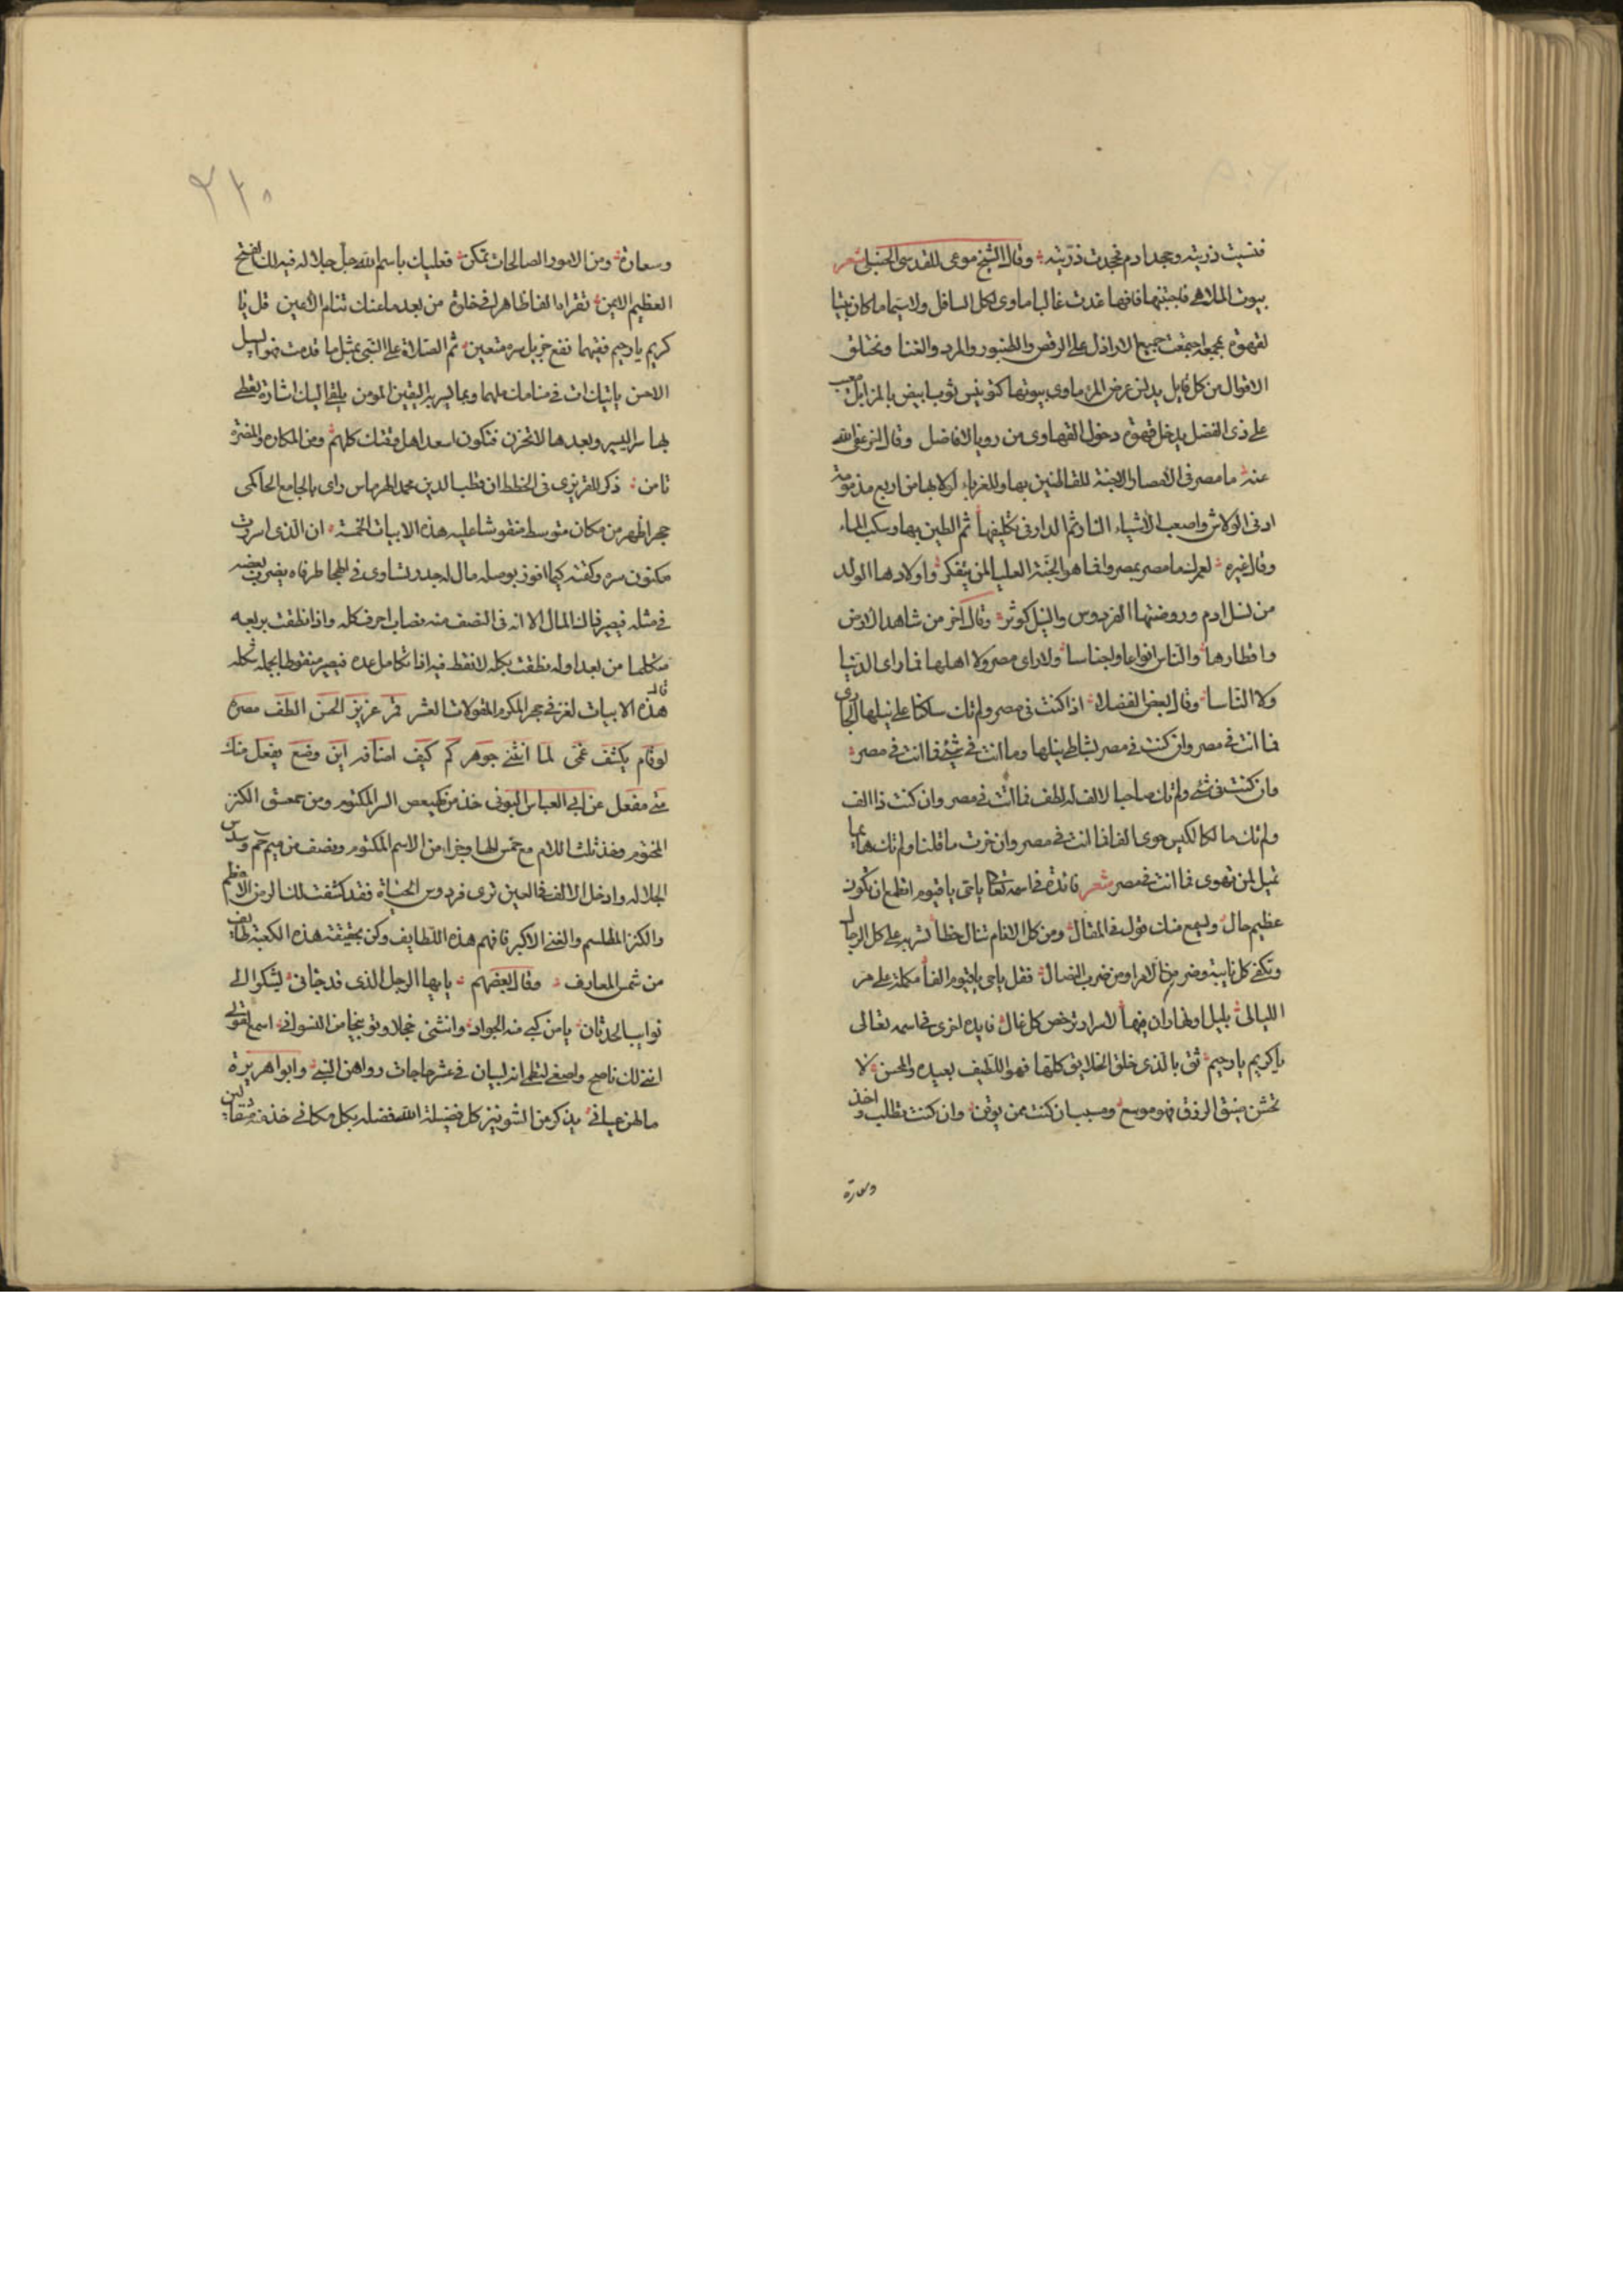 فنسيت ذريته وجحد ادم فجحدت ذريته وقال الشيخ موعى المقدسى الحنبلى شعر
بيوت الملاهى فاجتنبها فانها غدت غالبا ماوى لكل السافل ولا سيما ما كان بيتا
لقهوة بمجمعه اجتمعت جميع الاراذل على الرقص والطنبور والمرد والغنا وتختلق
الاقوال من كل قايل يدنس عرض المرء ماوى بيوتها كتدنيس ثوب ابيض بالمزابل معيب
على ذى الفضل يدخل قهوة دخول القهاوى من رويا الافاضل وقال اخر عفى الله
عنه ما مصر فى الامصار الا جنة للقاطنين بها وللغرباء لولا بها من اربع مذمومة
ادنى الولاش واصعب الاشياء النار ثم الدار فى تكليفها ثم الطين بها وسكب الماء
وقال غيره لعمرك ما مصر بمصر وانما هو الجنة العليا لمن يتفكر واولادها الولد
من نسل ادم وروضتها الفردوس والنيل كوثر وقال اخر من شاهد الارض
واقطارها والناس انواعا واجناسا ولا راى مصر ولا اهلها فما راى الدنيا
ولا الناسا وقال بعض الفضلا اذا كنت فى مصر ولم تك ساكنا على نيلها الجارى
فما انت فى مصر وان كنت فى مصر بشاطى نيلها وما انت فى شئ فما انت فى مصر
وان كنت فى شئ ولم تك صاحبا لالف له لطف فما انت فى مصر وان كنت ذا الف
ولم تك مالكا لكيس حوى الفا فما انت فى مصر وان حزت ما قلنا ولم تك هايما
تميل لمن تهوى فما انت فى مصر شعر فائدة فى اسمه تعالى ياحى ياقيوم اتطمع ان تكون
عظيم حال وليسمع منك قولك فى المقال ومن كل الانام تنال حظا تشهر على كل الرجال
وتكفى كل نايبة وضر من الامرا ومن ضرب النصال فقل ياحى ياقيوم الفا مكملة على مر
الليالى بليل او نهار ان فيها لاسرار ترخص كل غال فايده اخرى فى اسمه تعالى
ياكريم يارحيم ثق بالذى خلق الخلايق كلها فهو اللطيف بعبده والمحسن لا
تخش ضيق الرزق فهو موسع ومسبب ان كنت ممن يوقن وان كنت تطلب اخذ و
وسعادة
٢٢٥
وسعادة ومن الامور الصالحات تمكن فعليك باسم الله جل جلاله فيه لك الفتح
العظيم الابين تقراه الفا ظاهرا فى خلوة من بعد ما عنك تنام الاعين قل يا
كريم يا رحيم ففيهما نفع جزيل سره متعين ثم الصلاة على النبى بمثل ما قدمت فهو السبيل
الامن ياتيك ات فى منامك ملهما وبما يسر به اليقين المومن يلقى اليك اشارة تعطى
بها سر اليسير وبعدها لا تحزن فتكون اسعد اهل وقتك كلهم ومن المكاره والمضرة
تامن ذكر المقريزى فى الخطط ان قطب الدين محمد الهرماس راى بالجامع الحاكمى
حجر اظهر من مكان متوسط منقوشا عليه هذه الابيات الخمسة ان الذى اسررت
مكنون سره وكتمته كيما افوز بوصله مال له جدر تساوى فى الهجا طرفاه يضرب بعضه
فى مثله فيصير ذاك المال الا انه فى النصف منه يصاب احرف كله واذا نطقت بربعه
متكلما من بعد اوله نطقت بكله لا نقط فيه اذا تكامل عده فيصير منقوطا بجملة شكله
هذه الابيات لغز فى حجر المكرم المقولات العشر قال قمر عزيز الحسن الطف مصره
لو قام يكشف غمى لما انثنى جوهر كم كيف اضافه اين وضع يفعل منك
متى مفعل عن ابى العباس البونى خذ من كهيعص السر المكتوم ومن حمعسق الكنز
المختوم وخذ ثلث اللام مع خمس الها وجزا من الاسم المكتوم ونصف من ميم حم وسدس
الجلاله وادخل الالف فى العين ترى فردوس الحياة فقد كشفت لك الرمز الاعظم
والكنز المطلسم والغنى الاكبر فافهم هذه اللطايف وكن بحقيقة هذه الكعبة طايف
من شمس المعارف وقال بعضهم يايها الرجل الذى قد جائى يشكو الى
نوايب الحدثان يا من كبى منه الجواد وانثنى خجلا وتوبيخا من النسوان اسمع لقولى
اننى لك ناصح واصغى لنظمى انه لبيان فى عشر حاجات رواهن النبى وابو هريرة
مالهن عيانى يذكر من الشونيز كل فضيلة الله فضله بكل مكانى خذ منه مثقالين